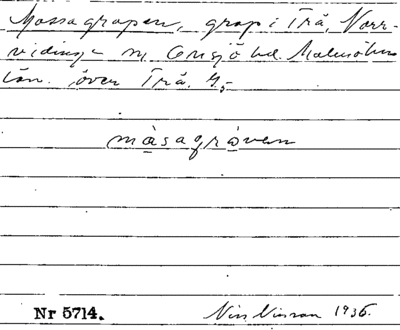 Mossagraven, grav i Trä, Norr-
vidinge sn, Onsjö hd. Malmöhus
län. även Trä.
måsagråven
Nr 5714.
Nils Nilsson 1936.